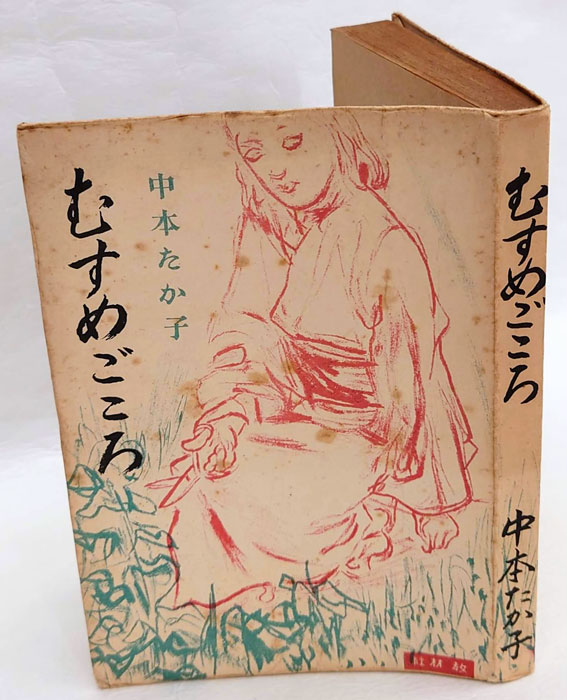 むすめごころ
中本たか子
むすめごころ
中本たか子
教材社